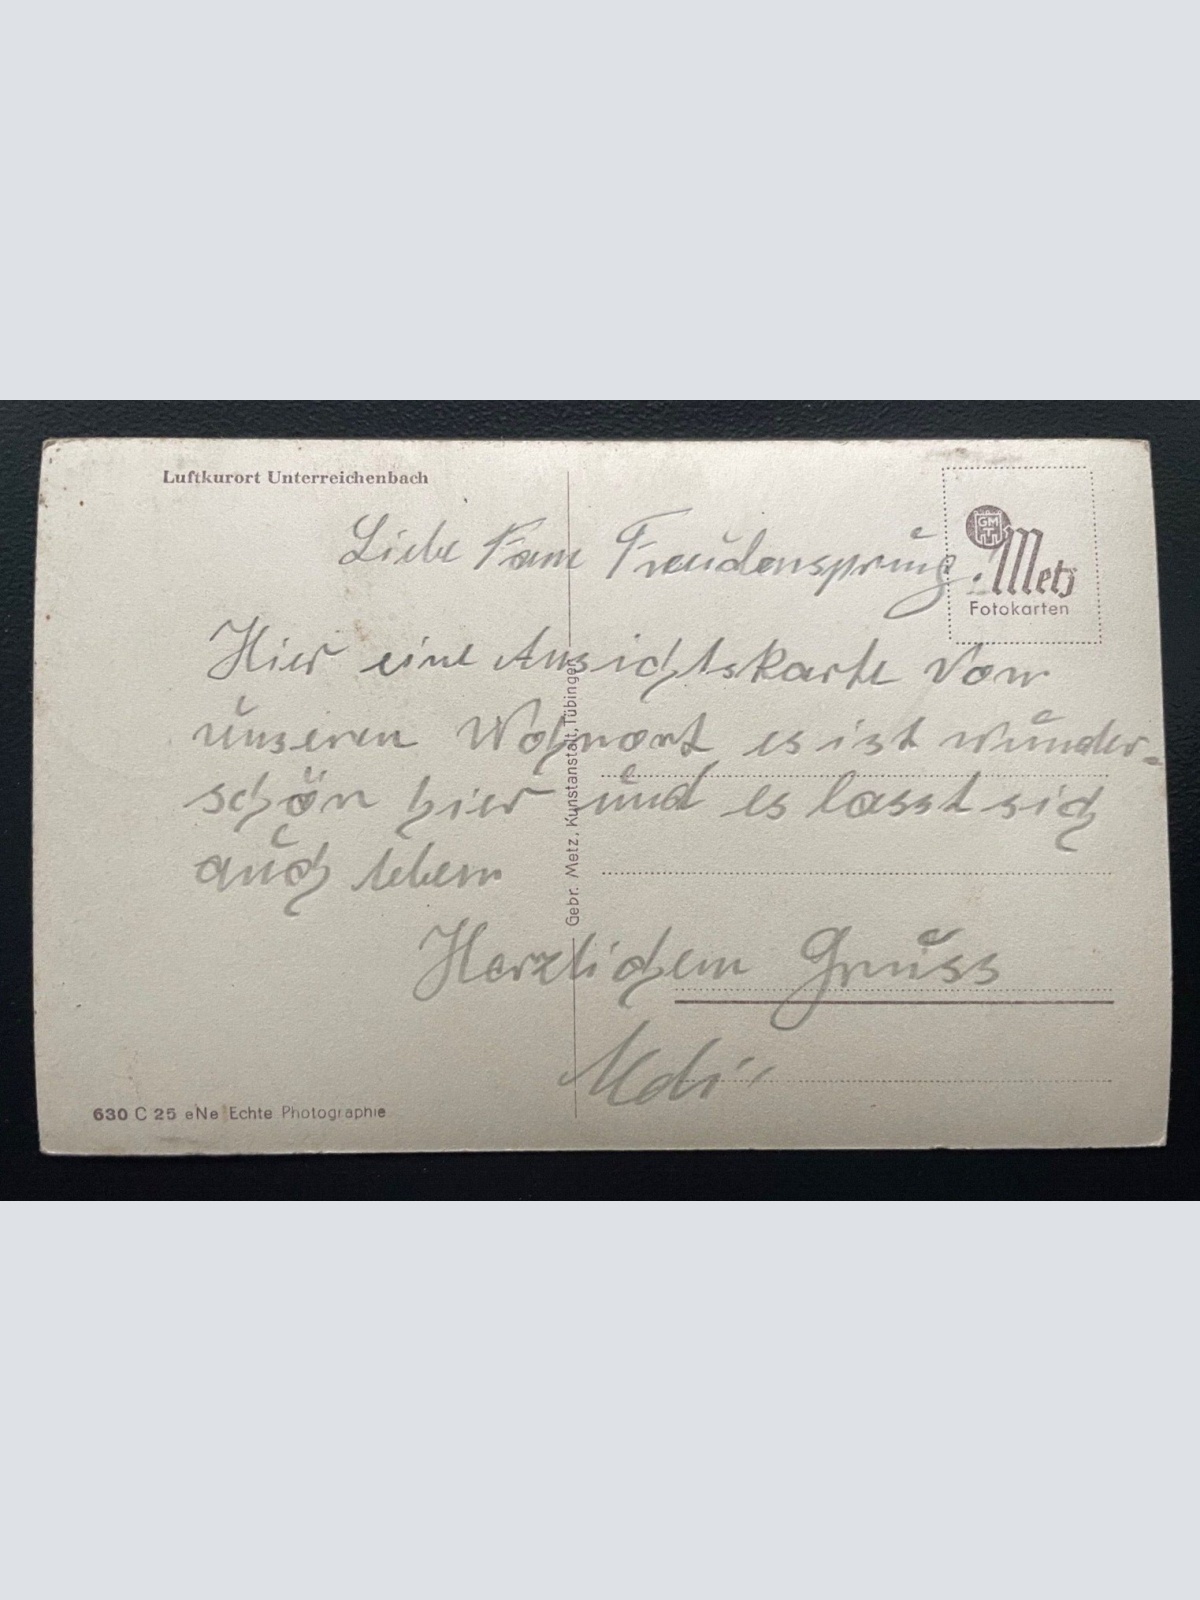 Luftkurort Unterreichenbach
GMT
Metz
Fotokarten
Liebe Fam Freudensprung.
Hier eine Ansichtskarte Von
unseren Wohnort es ist wunder-
schön hier und es lasst sich
auch leben
Herzlichem Gruss
Gebr. Metz, Kunstanstalt, Tübingen
630 C 25 eNe Echte Photographie